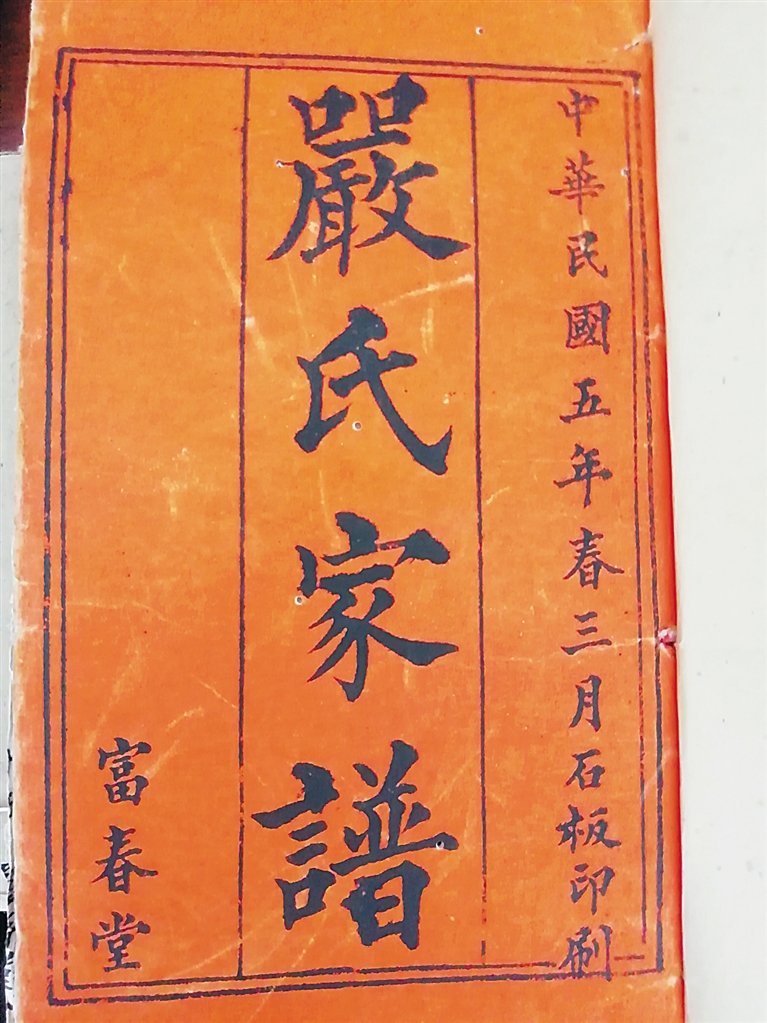 中華民國五年春三月石板印刷
嚴氏家譜
富春堂